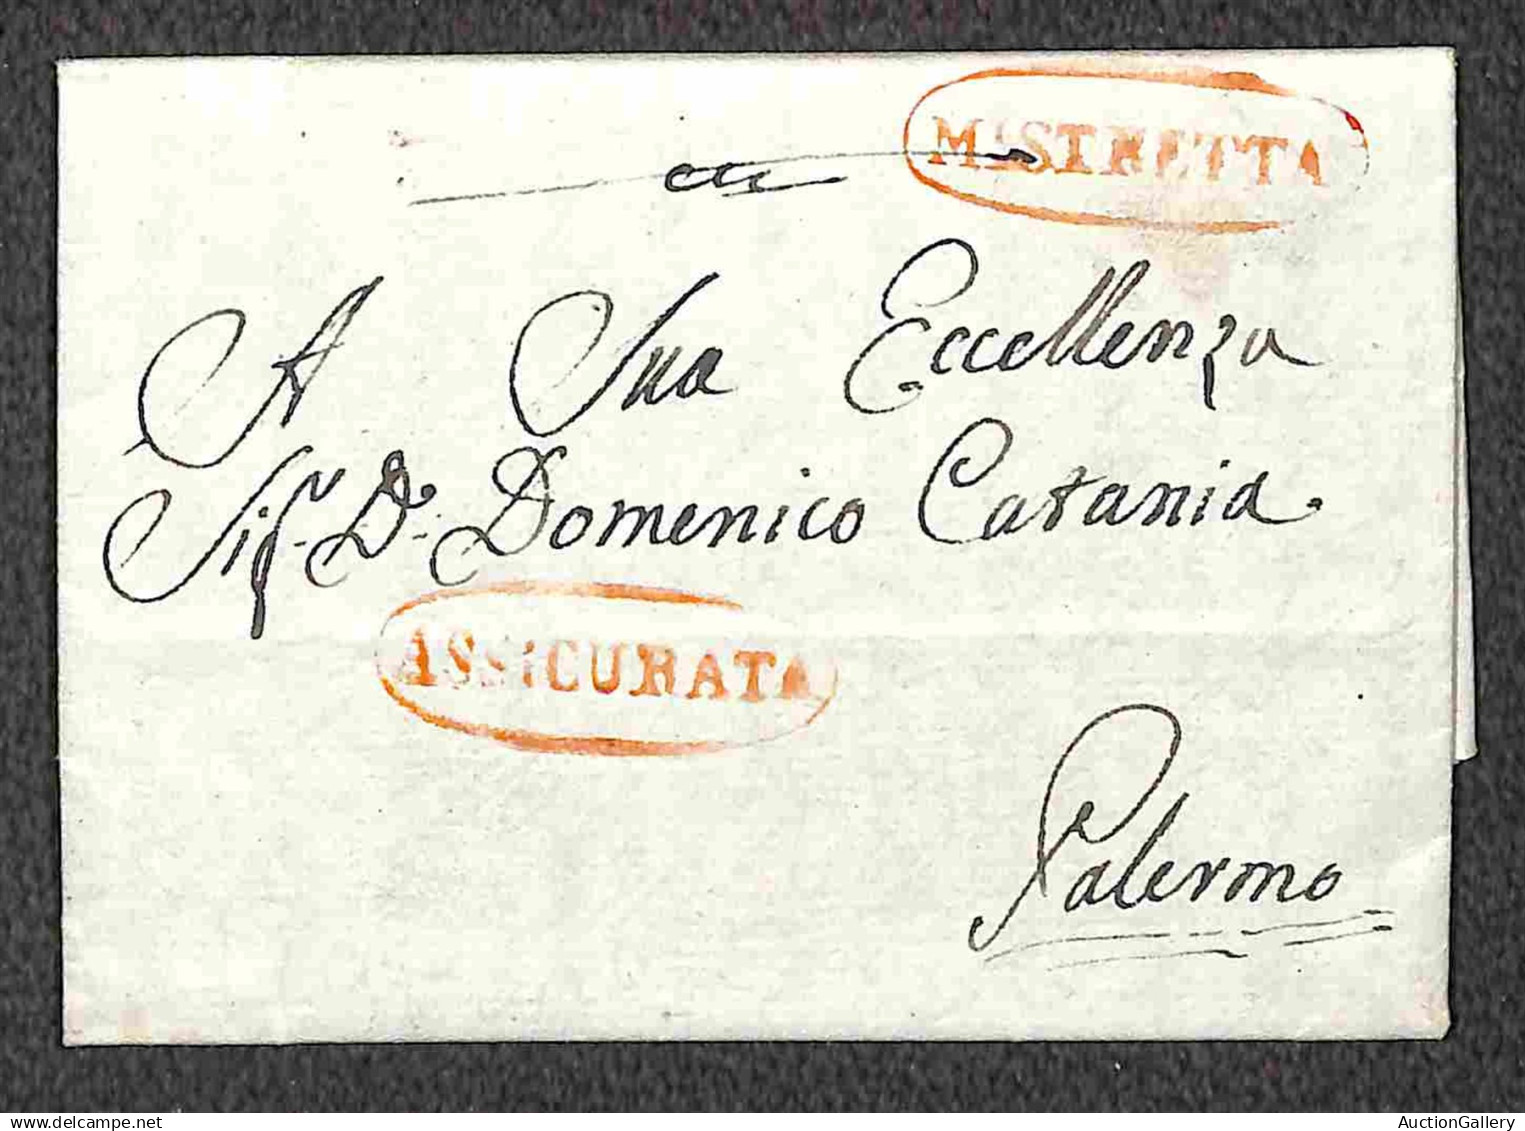 MiSTRETTA
A Sua Eccellenza
Sigr. Dn. Domenico Catania.
ASSiCURATA
Palermo
AuctionGallery